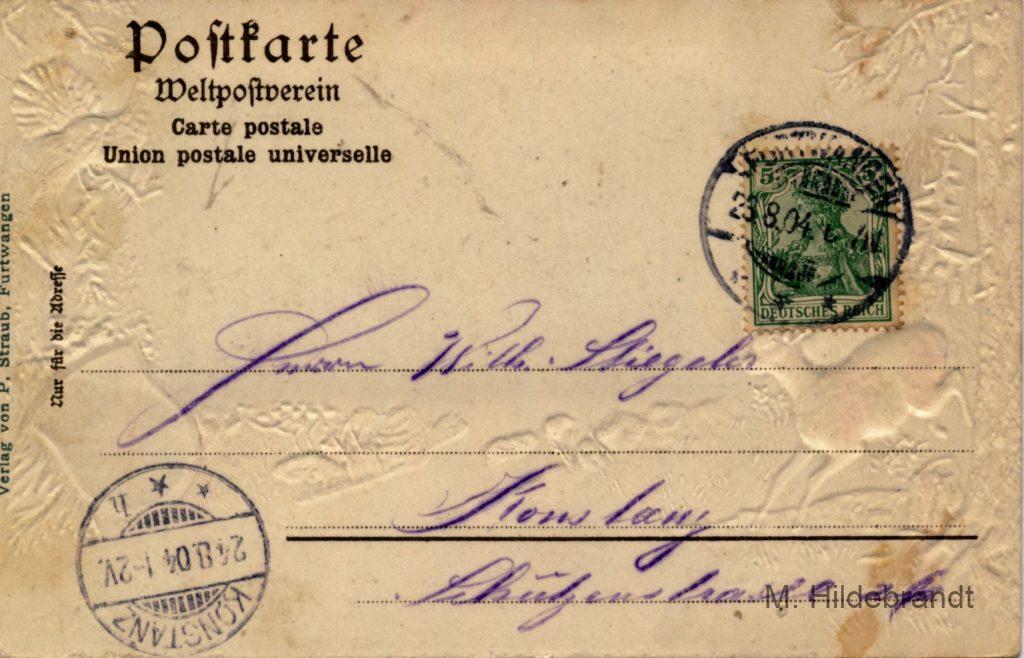 Postkarte
Weltpostverein
Carte postale
Union postale universelle
Verlag von P. Straub, Furtwangen
Nur für die Adresse
FURTWANGEN
23.8.04
5
DEUTSCHES REICH
Herrn Wilh. Stiegeler
Konstanz
Schützenstrasse
KONSTANZ
24.8.04.1-2V.
M. Hildebrandt